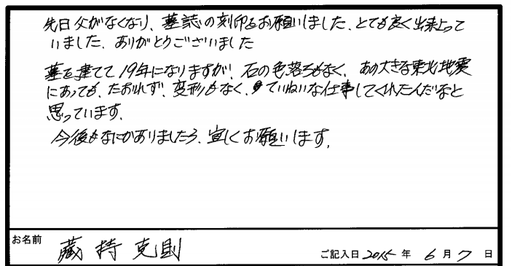 先日父がなくなり、墓誌の刻印をお願いしました、とても良く出来上って
いました、ありがとうございました
墓を建てて19年になりますが、石の色落ちもなく、あの大きな東北地震
にあっても、たおれず、変形もなく、ていねいな仕事してくれたんだなと
思っています.
今後もなにかありましたら、宜しくお願いします.
お名前 蔵持克則
ご記入日 2015年 6月 7日